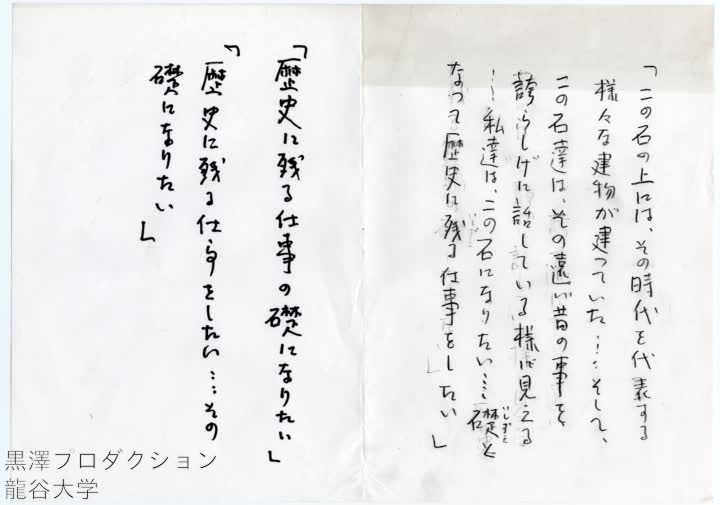 「この石の上には、その時代を代表する
様々な建物が建っていた……そして、
この石達は、その遠い昔の事を
誇らしげに話している様に見える
……私達は、この石になりたい……礎と
いしずえ
なって歴史に残る仕事をしたい」
「歴史に残る仕事の礎になりたい」
「歴史に残る仕事をしたい…その
礎になりたい」
黒澤プロダクション
龍谷大学